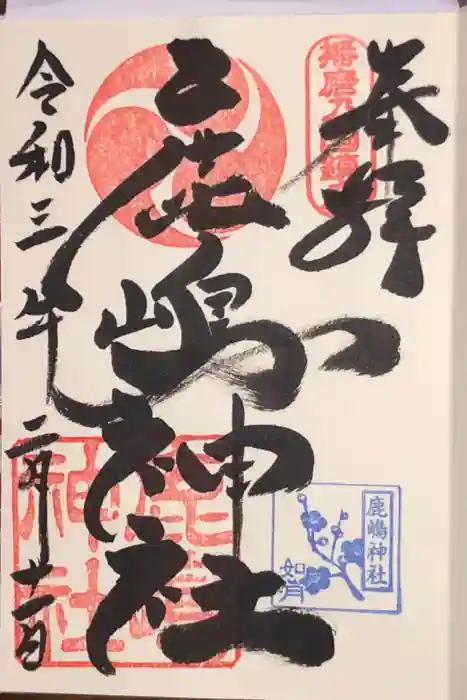 奉拝
鹿嶋神社
令和三年二月十一日
鹿嶋神社
如月
鹿嶋
神社